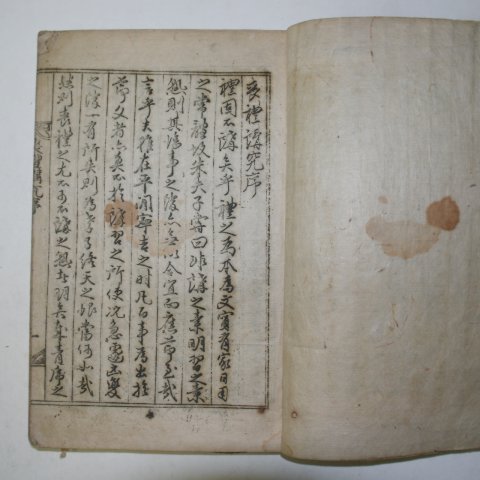 喪禮講究序
禮固不講矣乎禮之為本為文實有家日用
之常體故朱夫子嘗曰非講之素明習之素
熟則其臨事之際亦無以合宜而應節至哉
言乎夫雖在平閒寧吉之時凡百事為出於
節文者亦莫不於講習之所便况急遽凶變
之際一有所失則為孝子終天之恨當何如哉
然則喪禮之尤不可不講之熟